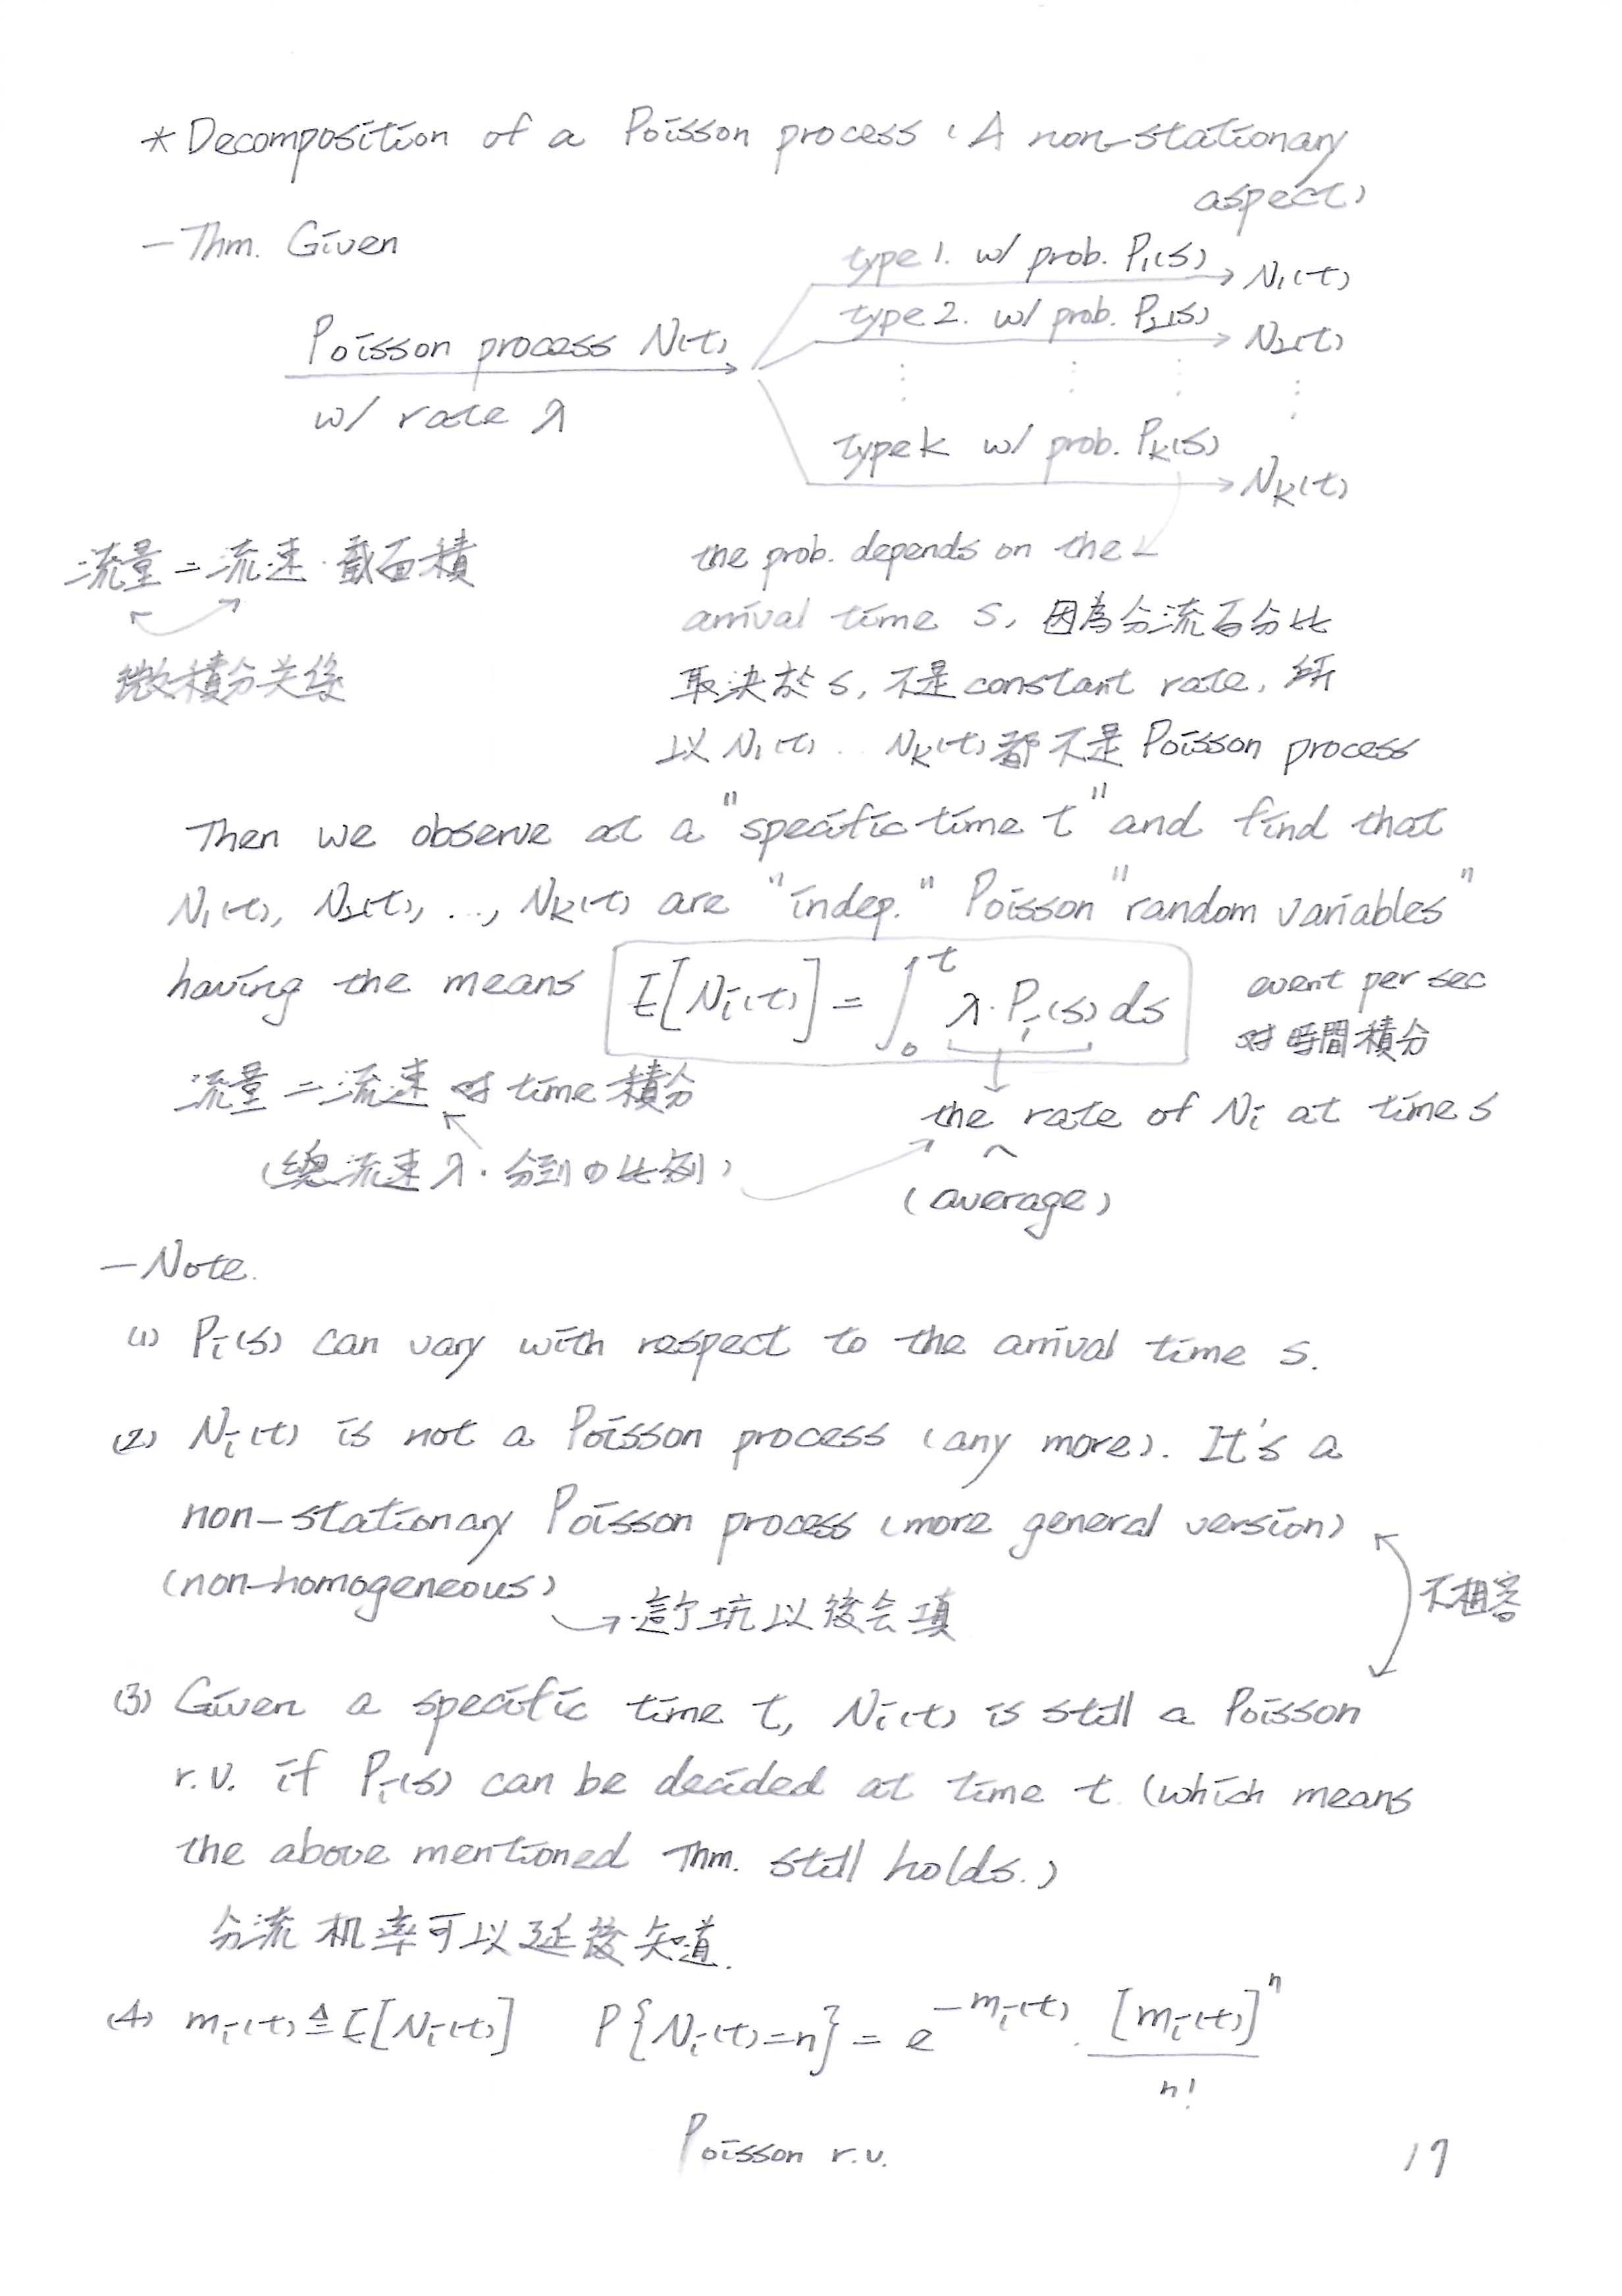 * Decomposition of a Poisson process (A non-stationary
aspect)
- Thm. Given
type 1. w/ prob. P₁(s) → N₁(t)
Poisson process N(t)
type 2. w/ prob. P₂(s) → N₂(t)
w/ rate λ
type k w/ prob. Pₖ(s) → Nₖ(t)
流量 = 流速 · 截面積
微積分关係
the prob. depends on the
arrival time s, 因為分流百分比
取決於 s, 不是 constant rate, 所
以 N₁(t) .. Nₖ(t) 都不是 Poisson process
Then we observe at a "specific time t" and find that
N₁(t), N₂(t), ..., Nₖ(t) are "indep." Poisson "random variables"
having the means E[Nᵢ(t)] = ∫₀ᵗ λ·Pᵢ(s) ds
event per sec
对時間積分
流量 = 流速 对 time 積分
(總流速 λ · 分到の比例)
the rate of Nᵢ at time s
(average)
- Note.
(1) Pᵢ(s) can vary with respect to the arrival time s.
(2) Nᵢ(t) is not a Poisson process (any more). It's a
non-stationary Poisson process (more general version)
(non-homogeneous) → 這个坑以後会填
不相容
(3) Given a specific time t, Nᵢ(t) is still a Poisson
r.v. if Pᵢ(s) can be decided at time t (which means
the above mentioned Thm. still holds.)
分流机率可以延後知道.
(4) mᵢ(t) ≜ E[Nᵢ(t)] P{Nᵢ(t)=n} = e^{-mᵢ(t)} · [mᵢ(t)]ⁿ / n!
Poisson r.v.
19